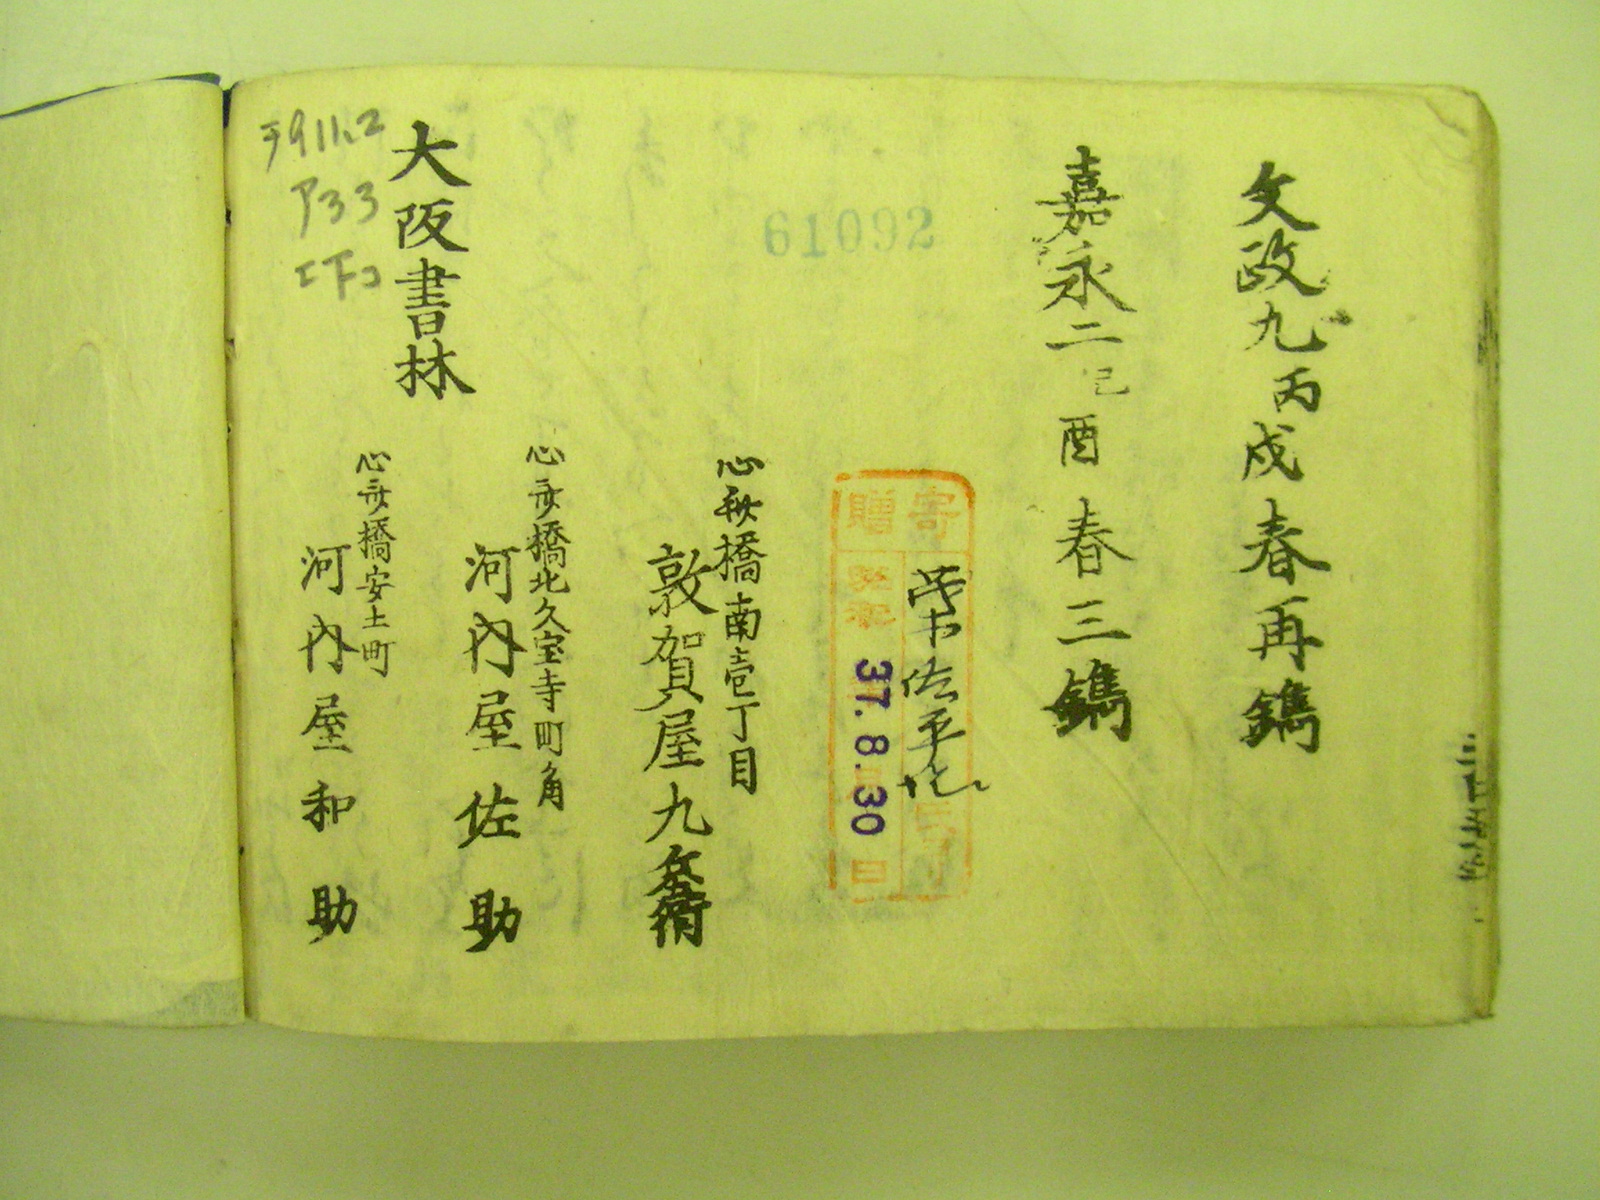 文政九丙戌春再鐫
嘉永二己酉春三鐫
61092
寄贈
昭和 37.8.30 日
心斎橋南壱丁目
敦賀屋九兵衛
心斎橋北久宝寺町角
河内屋佐助
心斎橋安土町
河内屋和助
大阪書林
911.2
ア33